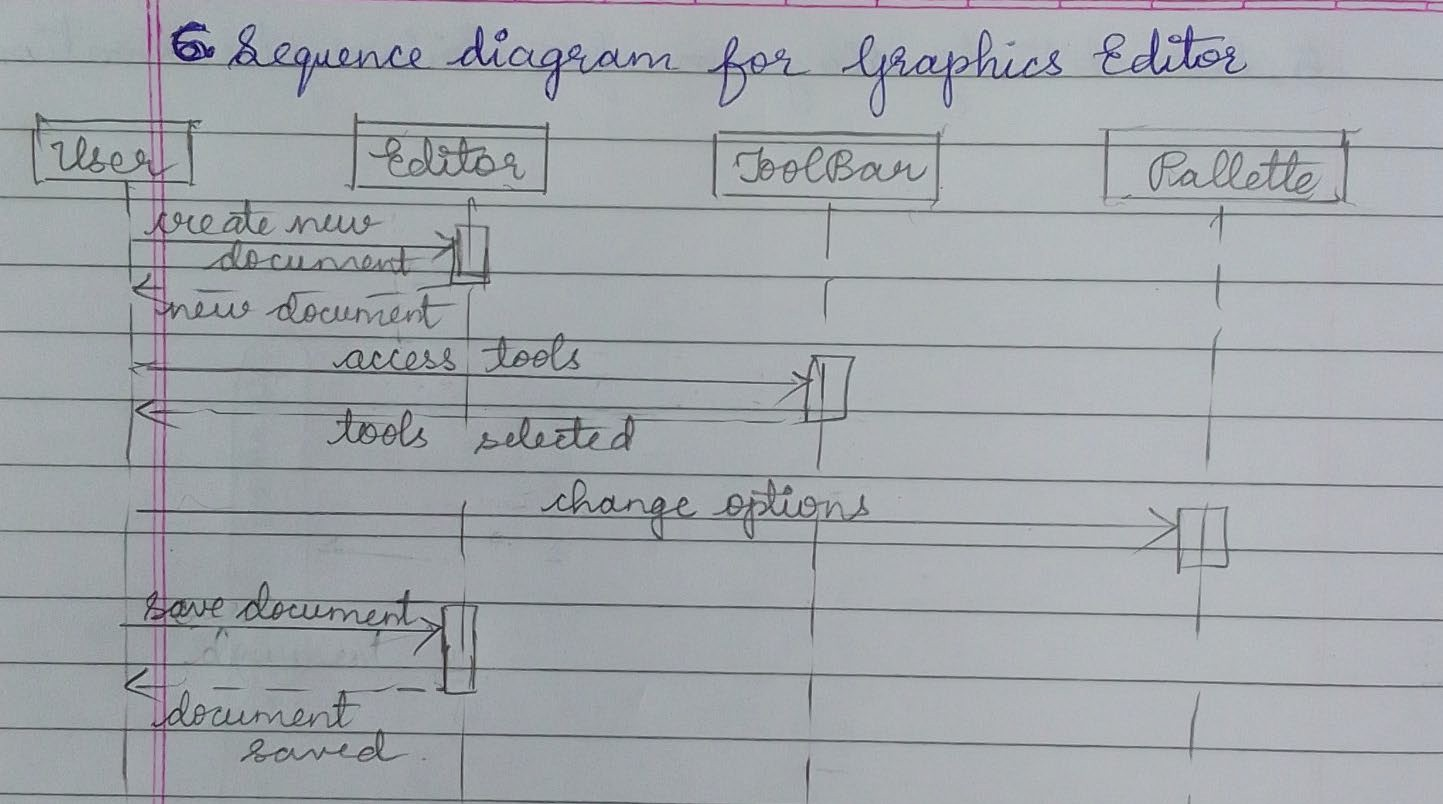 6. Sequence diagram for Graphics Editor
User Editor ToolBar Pallette
create new
document
new document
access tools
tools selected
change options
save document
document
saved.